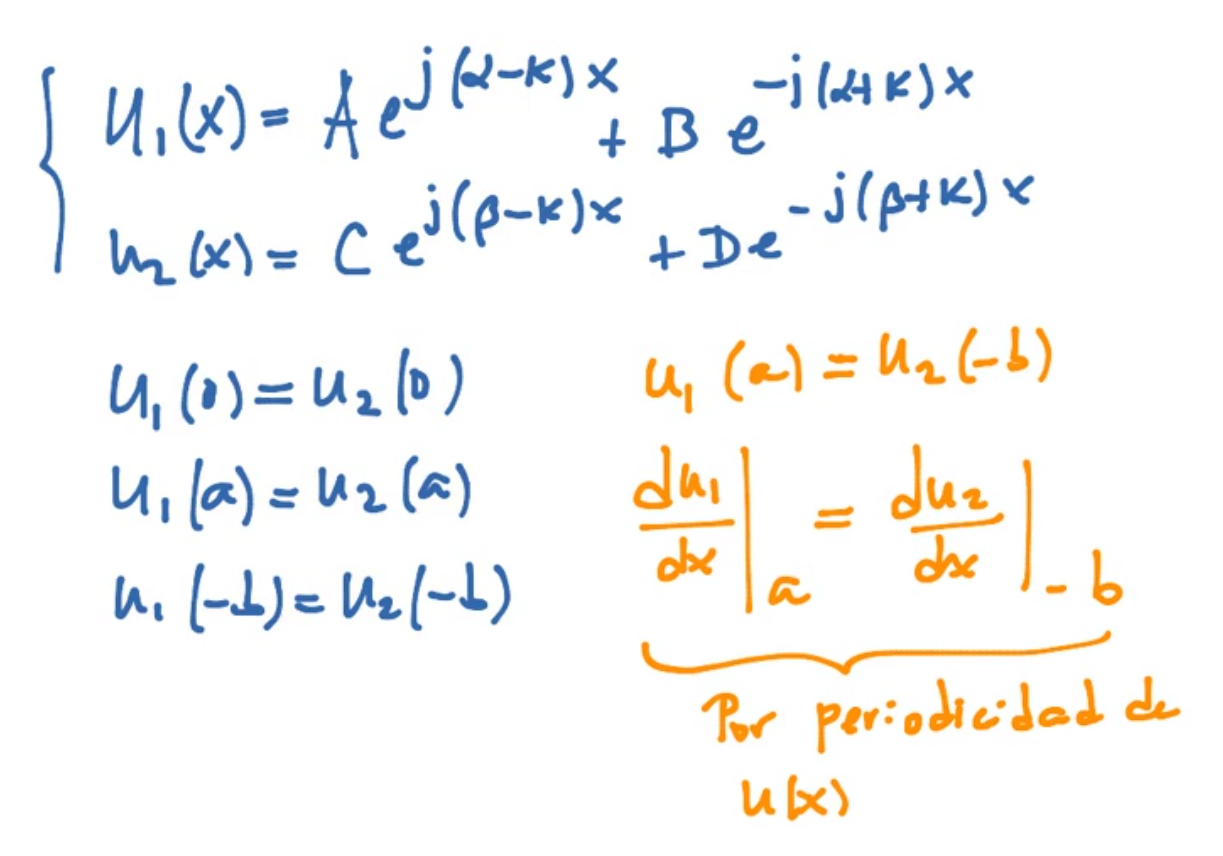 U₁(x) = A e^{j(α-κ)x} + B e^{-j(α+κ)x}
u₂(x) = C e^{j(β-κ)x} + D e^{-j(β+κ)x}
U₁(0) = U₂(0)
U₁(a) = U₂(a)
u₁(-b) = U₂(-b)
u₁(a) = U₂(-b)
du₁/dx |ₐ = du₂/dx |_{-b}
Por periodicidad de
u(x)